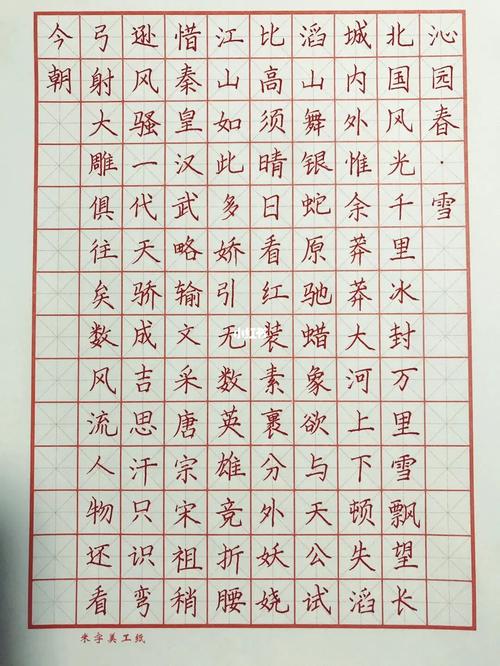 沁园春·雪
北国风光千里冰封万里雪飘望长
城内外惟余莽莽大河上下顿失滔
滔山舞银蛇原驰蜡象欲与天公试
比高须晴日看红装素裹分外妖娆
江山如此多娇引无数英雄竞折腰
惜秦皇汉武略输文采唐宗宋祖稍
逊风骚一代天骄成吉思汗只识弯
弓射大雕俱往矣数风流人物还看
今朝
朱字美工纸
小红书